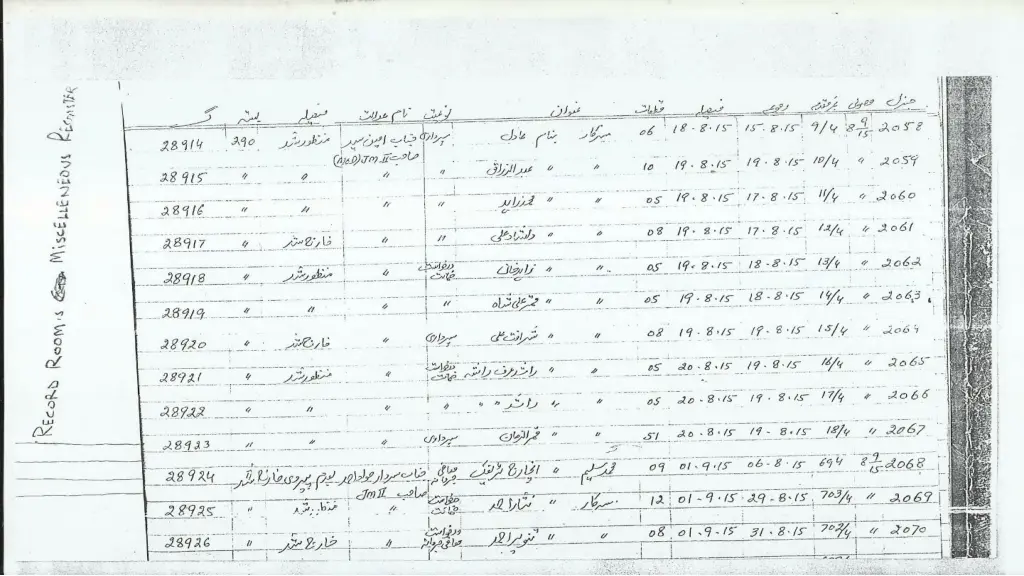 RECORD ROOM'S MISCELLENEOUS REGISTER
جنرل فیصلہ قطعات عنوان نوعیت نام عدالت فیصلہ بستہ
2058 8 9/15 9/4 15.8.15 18.8.15 06 سرکار بنام عادل سپرداری جناب امین سید منظور شد 290 28914
صاحب JM II
2059 " 10/4 19.8.15 19.8.15 10 " " عبدالرزاق " " " " 28915
2060 " 11/4 17.8.15 19.8.15 05 " " محمد زاہد " " " " 28916
2061 " 12/4 17.8.15 19.8.15 08 " " دلشاد علی " " خارج شد " 28917
2062 " 13/4 18.8.15 19.8.15 05 " " درخواست ضمانت " منظور شد " 28918
2063 " 14/4 18.8.15 19.8.15 05 " " " " " " 28919
2064 " 15/4 19.8.15 19.8.15 08 " " شرافت علی سپرداری " خارج شد " 28920
2065 " 16/4 19.8.15 20.8.15 05 " " درخواست ضمانت " منظور شد " 28921
2066 " 17/4 19.8.15 20.8.15 05 " " راشد " " " " " " 28922
2067 " 18/4 19-8.15 20.8.15 51 " " قمرالزمان سپرداری " " " 28923
2068 8 9/15 694 06-8.15 01.9.15 09 محمد سلیم " انچارج ٹریفک معافی جرمانہ جناب سردار جواد احمد عدم پیروی خارج شد 28924
صاحب JM II
2069 " 703/4 29-8.15 01-9.15 12 سرکار " نثار احمد درخواست ضمانت " منظور شد " 28925
2070 " 702/4 31.8.15 01.9.15 08 " " تنویر احمد درخواست معافی جرمانہ " خارج شد " 28926